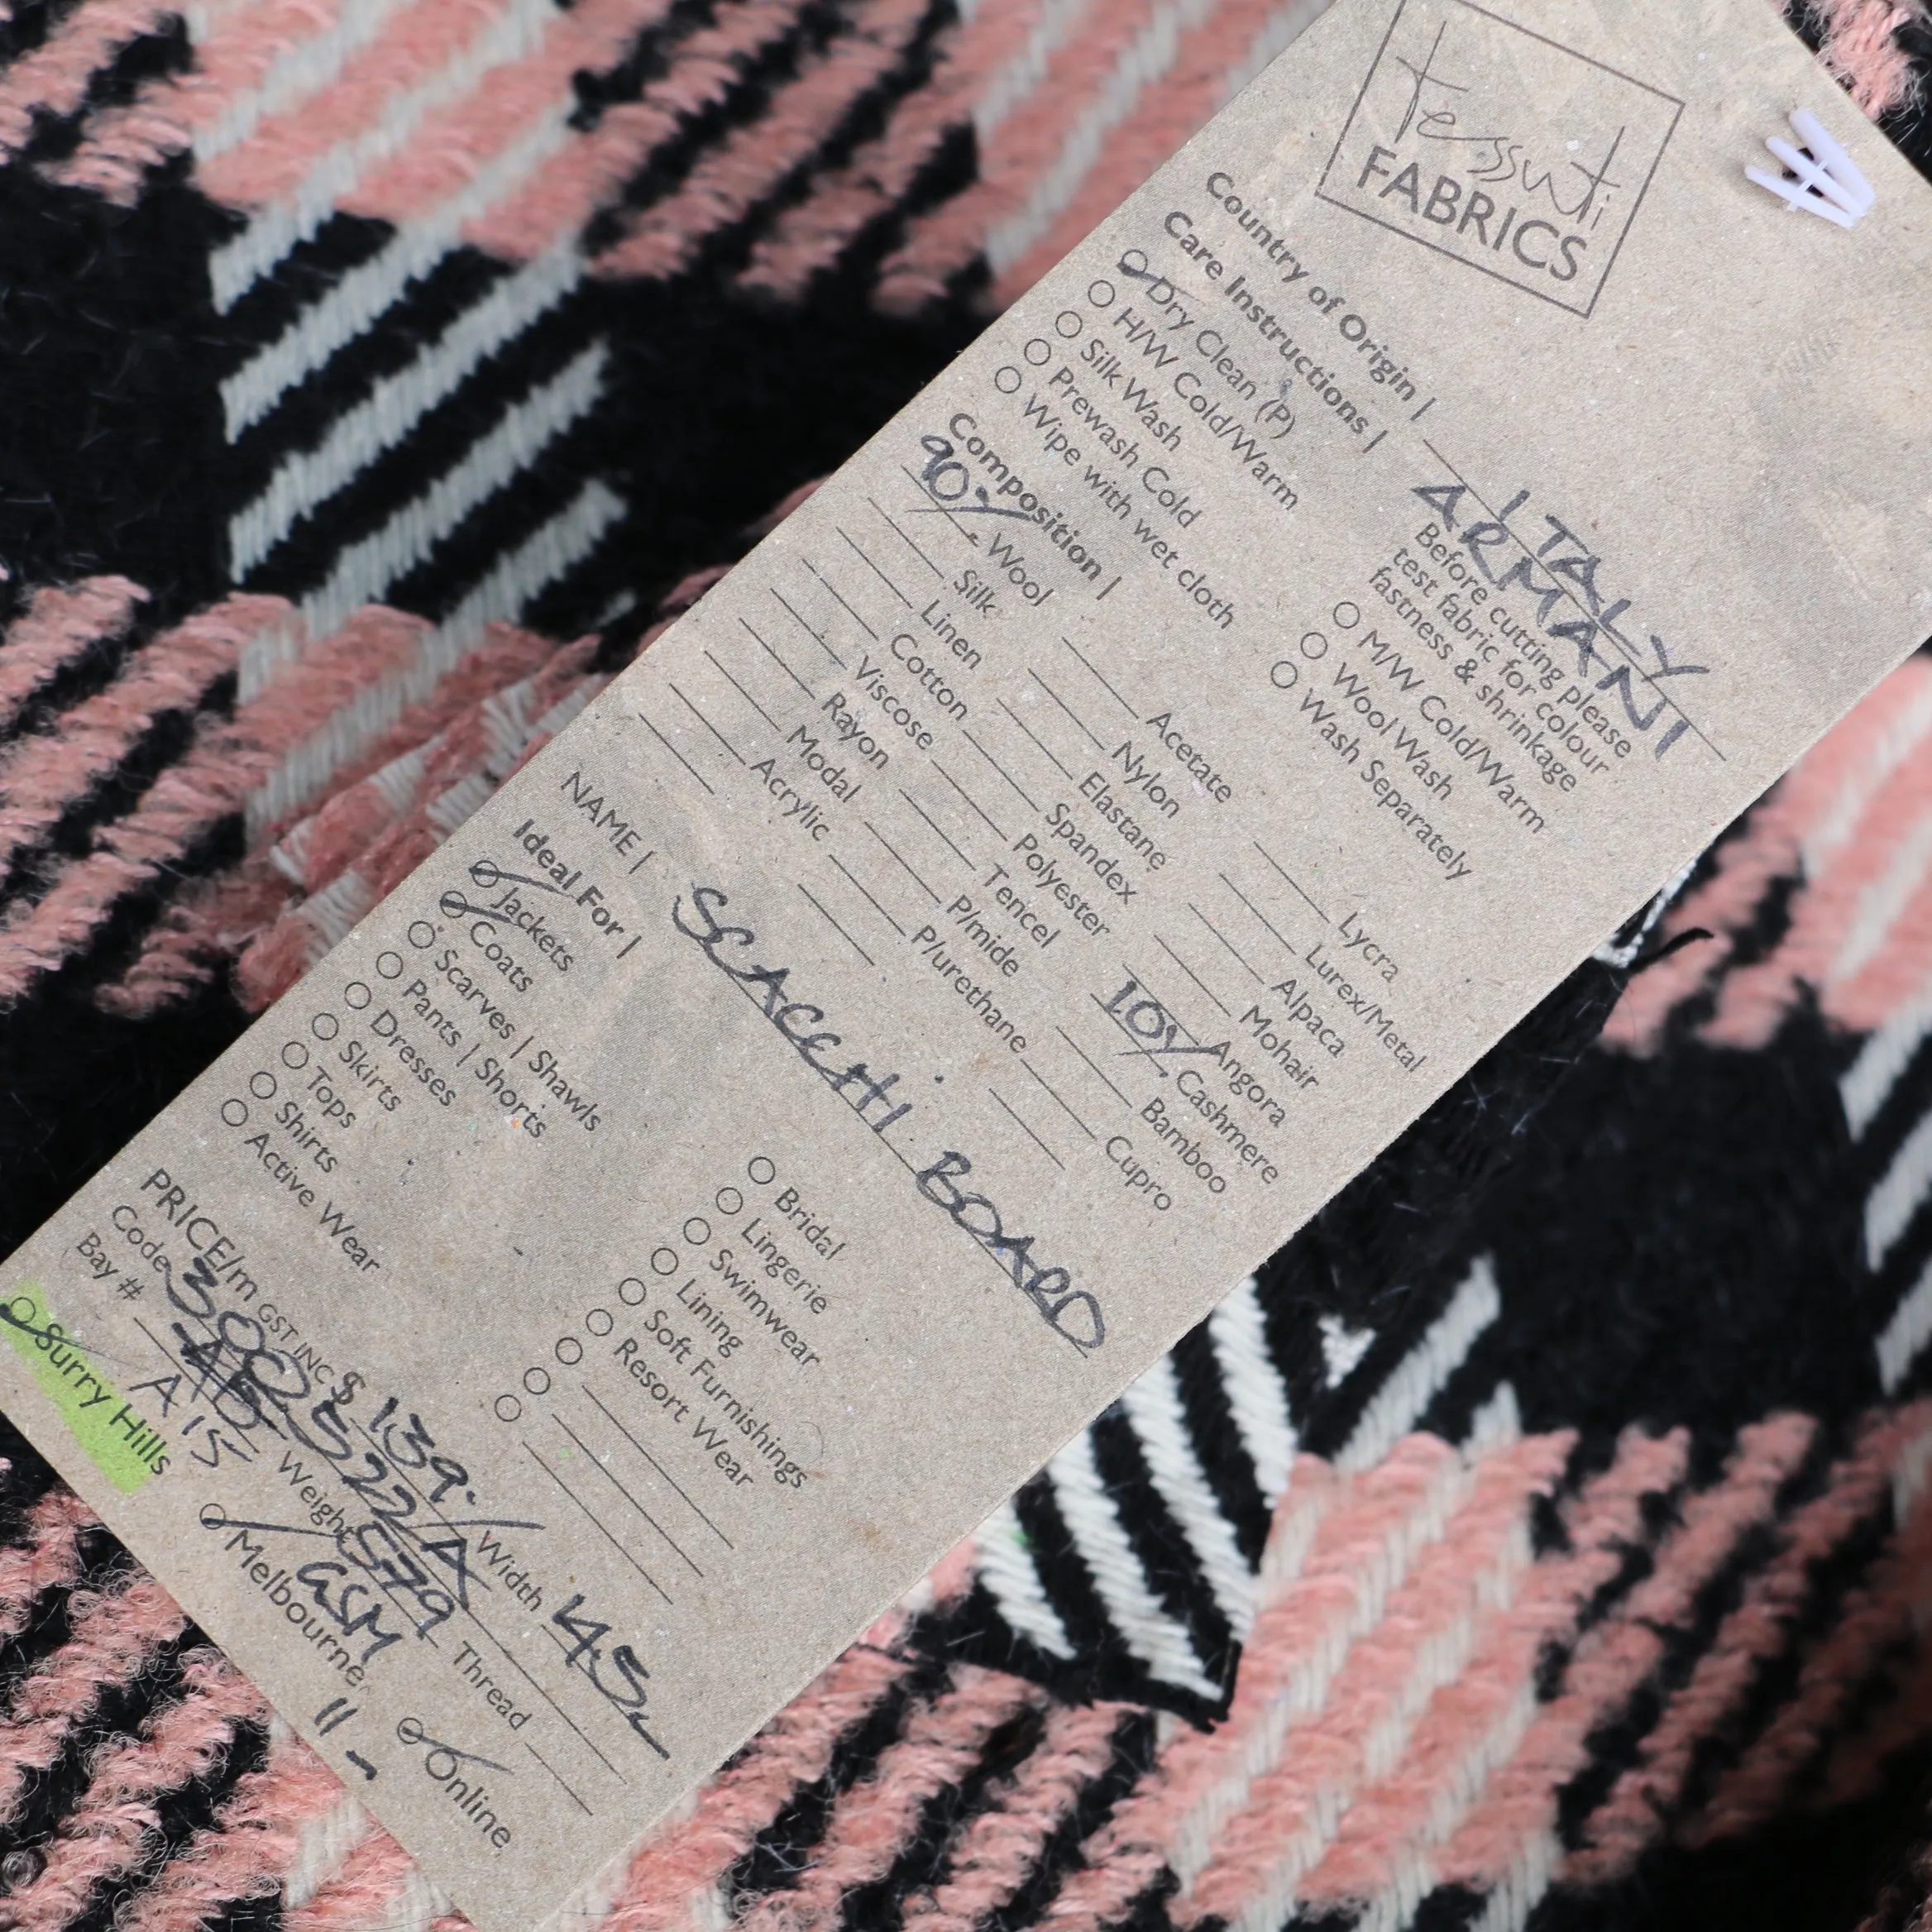 tessuti
FABRICS
Country of Origin | ITALY
ARMANI
Care Instructions |
Before cutting please
test fabric for colour
fastness & shrinkage
Dry Clean (P)
H/W Cold/Warm
Silk Wash
Prewash Cold
Wipe with wet cloth
M/W Cold/Warm
Wool Wash
Wash Separately
Composition |
90% Wool
Silk
Linen
Cotton
Viscose
Rayon
Modal
Acrylic
Acetate
Nylon
Elastane
Spandex
Polyester
Tencel
P/mide
P/urethane
Lycra
Lurex/Metal
Alpaca
Mohair
Angora
10% Cashmere
Bamboo
Cupro
NAME | SCACCHI BOARD
Ideal For |
Jackets
Coats
Scarves | Shawls
Pants | Shorts
Dresses
Skirts
Tops
Shirts
Active Wear
Bridal
Lingerie
Swimwear
Lining
Soft Furnishings
Resort Wear
PRICE/m GST INC $ 139.-
Code 3005322/A Width 145
Bay # A15 Weight 579 GSM Thread
Surry Hills Melbourne Online
11